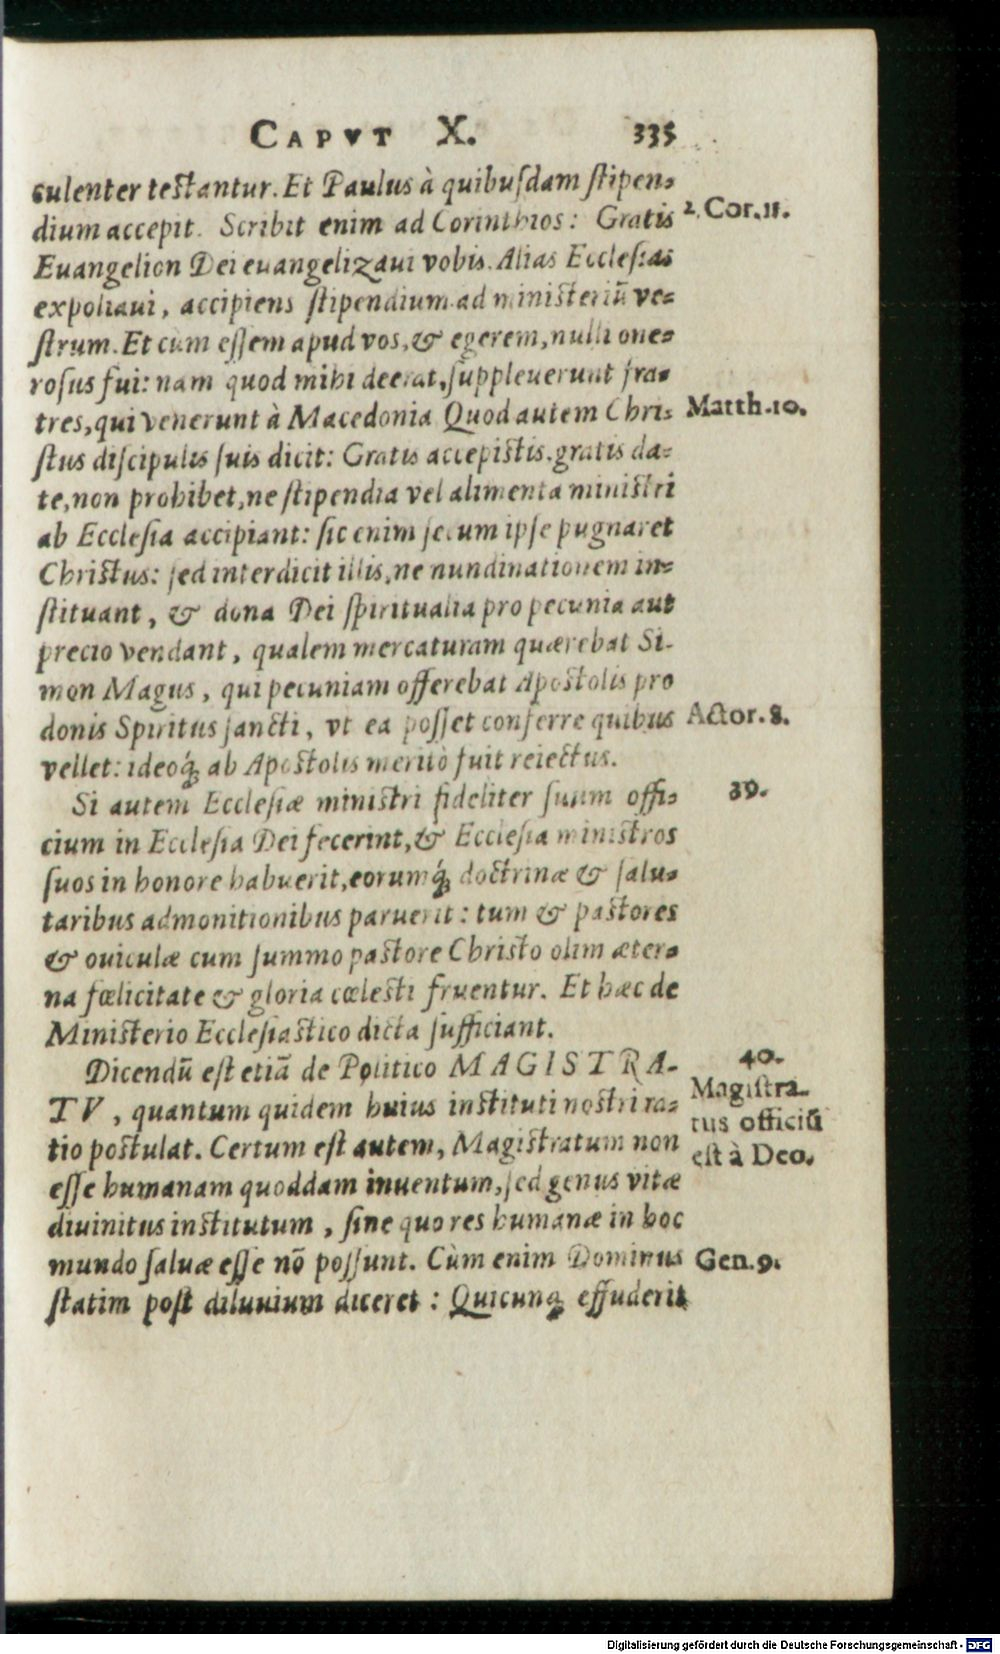 CAPVT X. 335
culenter testantur. Et Paulus à quibusdam stipen-
dium accepit. Scribit enim ad Corinthios: Gratis
2. Cor. 11.
Euangelion Dei euangelizaui vobis. Alias Ecclesias
expoliaui, accipiens stipendium ad ministeriũ ve-
strum. Et cùm essem apud vos, & egerem, nulli one-
rosus fui: nam quod mihi deerat, suppleuerunt fra-
tres, qui venerunt à Macedonia Quod autem Chri-
Matth. 10.
stus discipulis suis dicit: Gratis accepistis, gratis da-
te, non prohibet, ne stipendia vel alimenta ministri
ab Ecclesia accipiant: sic enim secum ipse pugnaret
Christus: sed interdicit illis, ne nundinationem in-
stituant, & dona Dei spiritualia pro pecunia aut
precio vendant, qualem mercaturam quærebat Si-
mon Magus, qui pecuniam offerebat Apostolis pro
donis Spiritus sancti, vt ea posset conferre quibus
Actor. 8.
vellet: ideoq́ꝫ ab Apostolis meritò fuit reiectus.
Si autem Ecclesiæ ministri fideliter suum offi-
39.
cium in Ecclesia Dei fecerint, & Ecclesia ministros
suos in honore habuerit, eorumq́ꝫ doctrinæ & salu-
taribus admonitionibus paruerit: tum & pastores
& ouiculæ cum summo pastore Christo olim æter-
na fœlicitate & gloria cœlesti fruentur. Et hæc de
Ministerio Ecclesiastico dicta sufficiant.
Dicendũ est etiã de Politico MAGISTRA-
40.
TV, quantum quidem huius instituti nostri ra-
Magistra-
tio postulat. Certum est autem, Magistratum non
tus officiũ
esse humanam quoddam inuentum, sed genus vitæ
est à Deo.
diuinitus institutum, sine quo res humanæ in hoc
mundo saluæ esse nõ possunt. Cùm enim Dominus
Gen. 9.
statim post diluuium diceret: Quicunqꝫ effuderit
Digitalisierung gefördert durch die Deutsche Forschungsgemeinschaft - DFG